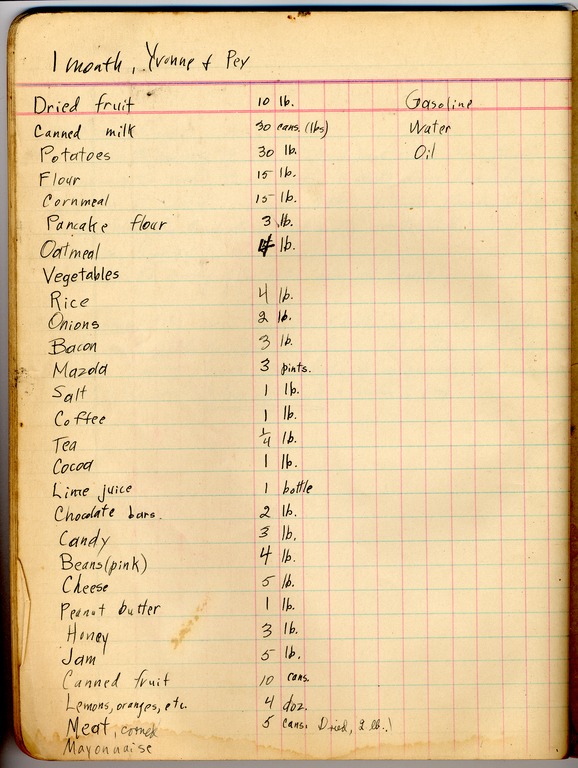 1 month, Yvonne & Pey
Dried fruit 10 lb. Gasoline
Canned milk 30 cans. (lbs) Water
Potatoes 30 lb. Oil
Flour 15 lb.
Cornmeal 15 lb.
Pancake flour 3 lb.
Oatmeal 4 lb.
Vegetables
Rice 4 lb.
Onions 2 lb.
Bacon 3 lb.
Mazola 3 pints.
Salt 1 lb.
Coffee 1 lb.
Tea 1/4 lb.
Cocoa 1 lb.
Lime juice 1 bottle
Chocolate bars. 2 lb.
Candy 3 lb.
Beans (pink) 4 lb.
Cheese 5 lb.
Peanut butter 1 lb.
Honey 3 lb.
Jam 5 lb.
Canned fruit 10 cans.
Lemons, oranges, etc. 4 doz.
Meat, corned 5 cans. Dried, 2 lb.)
Mayonnaise